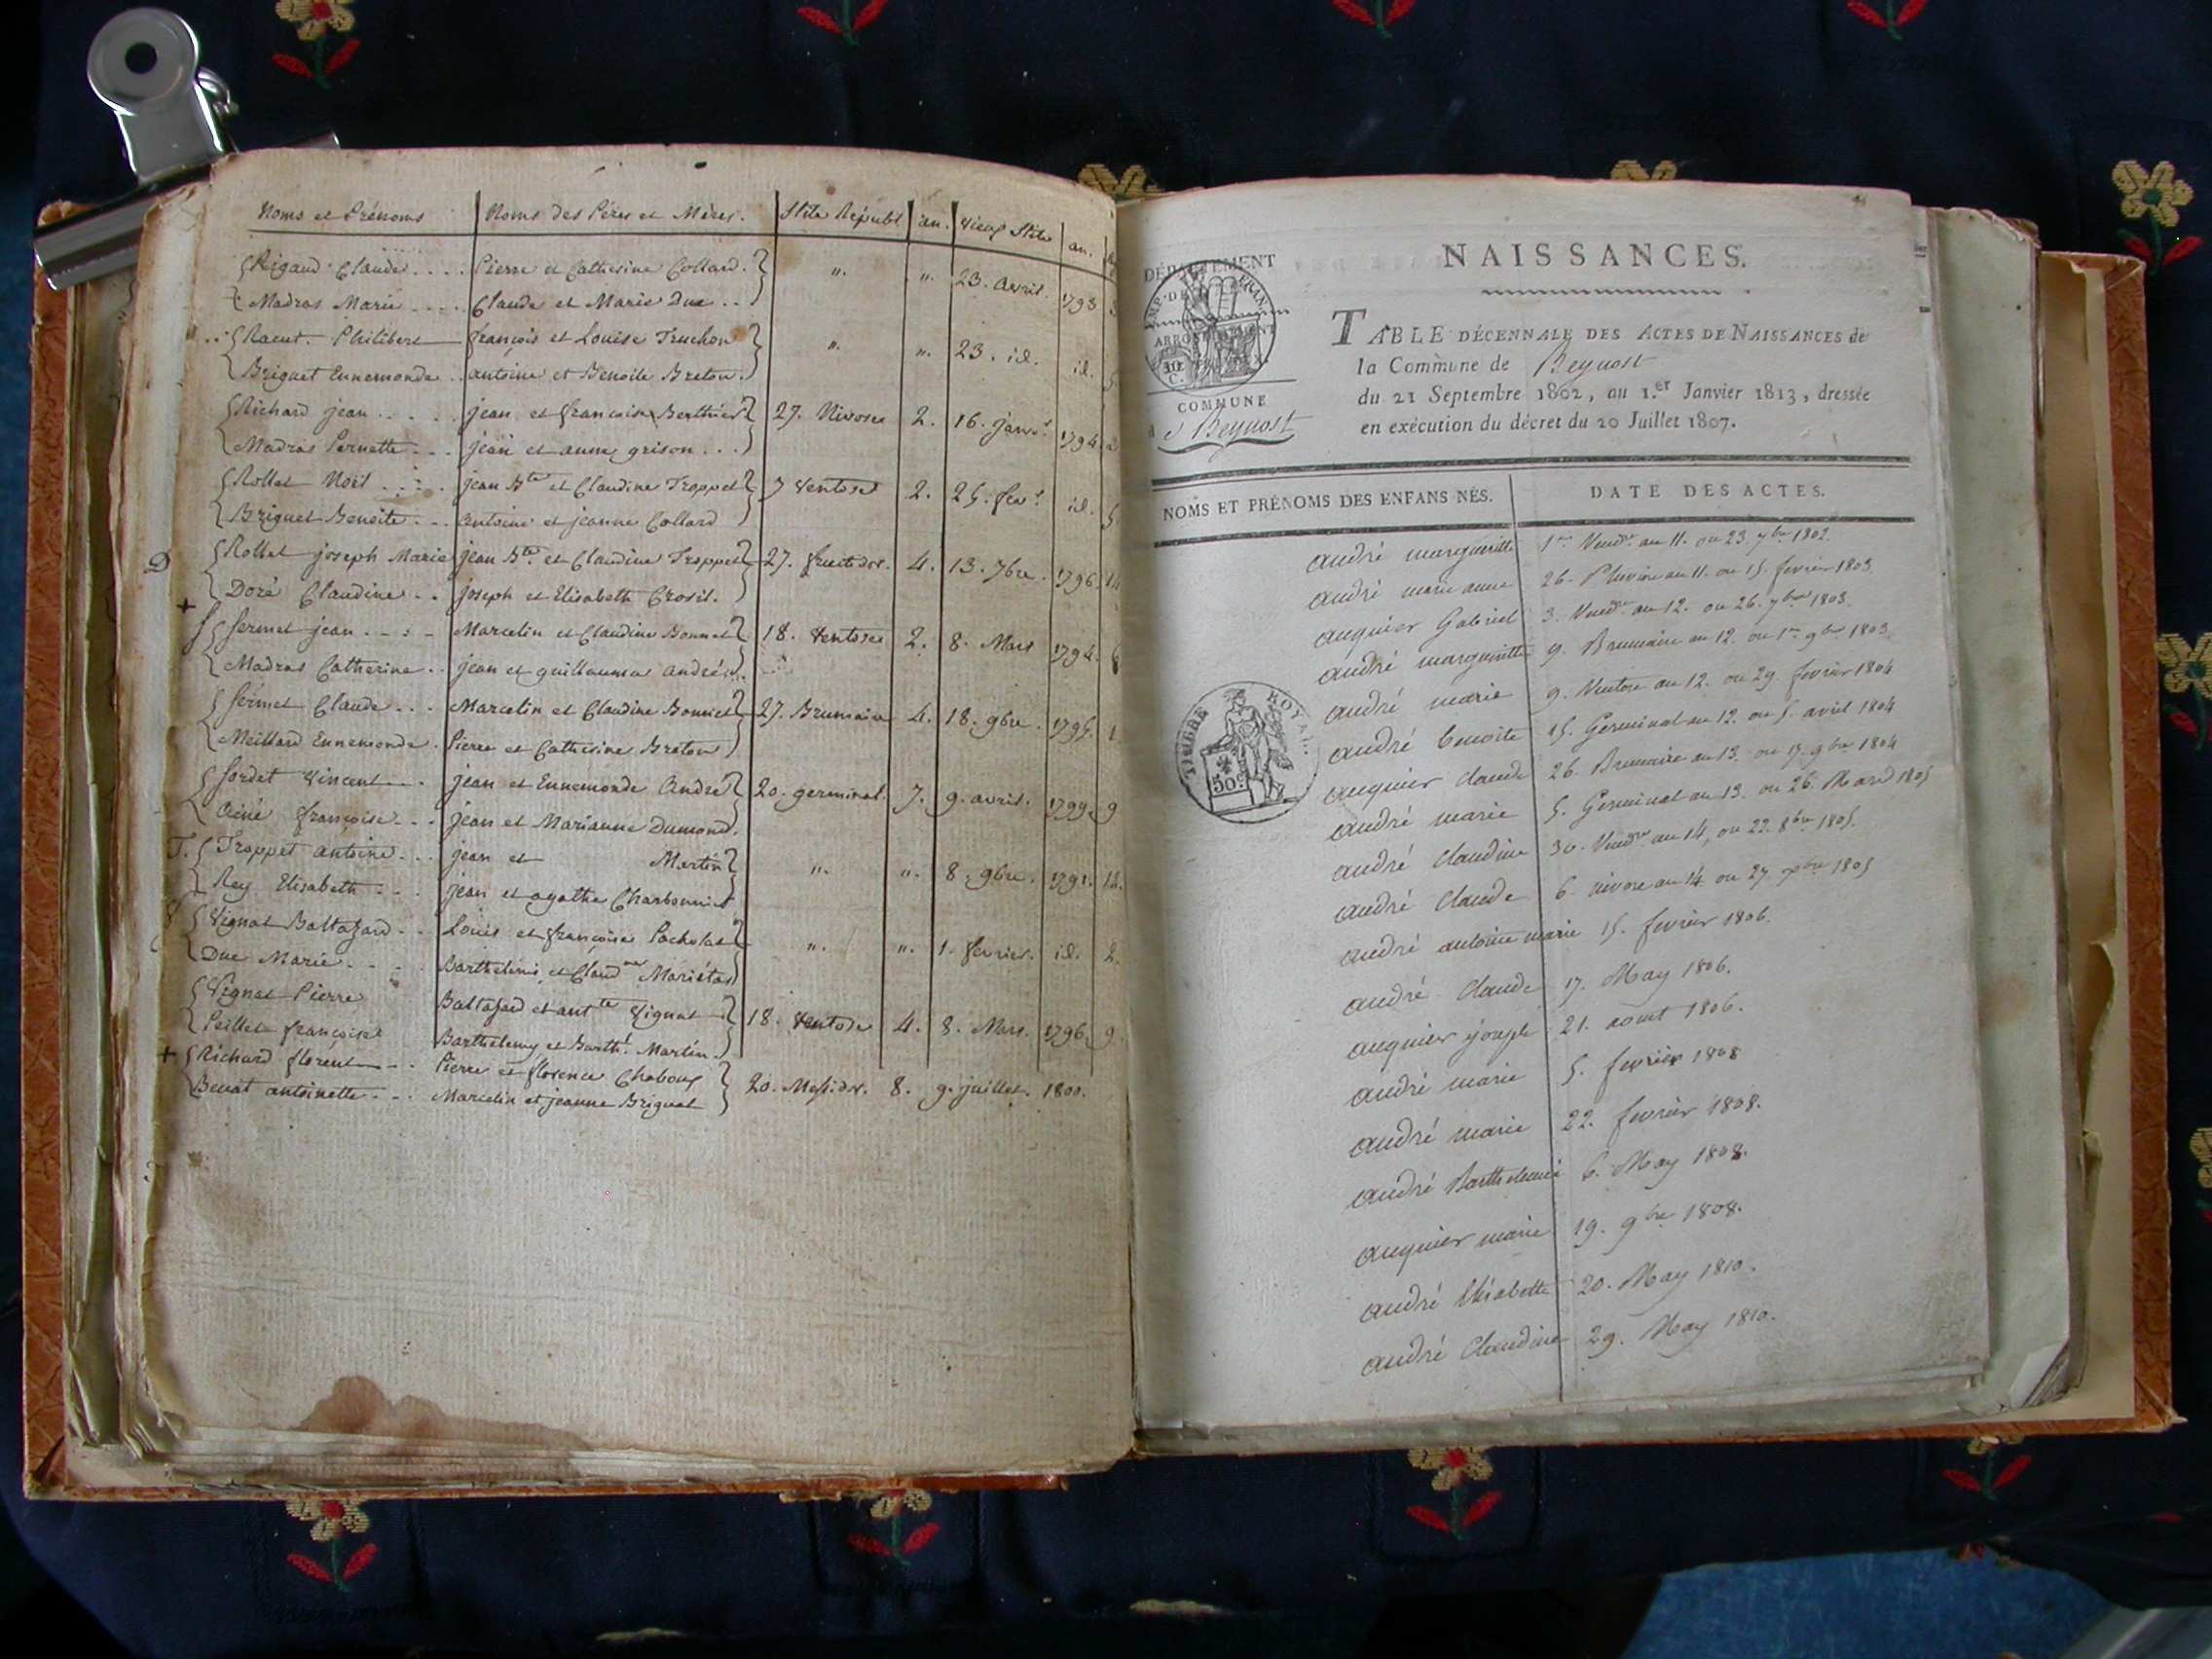 Noms et Prénoms Noms des Pères et Mères. Stile Républ. an. Vieux Stile an.
Rigaud Claude.... Pierre et Catherine Collard. ". ". 23. avril. 1793
Madras Marie.... Claude et Marie Duc..
Philibert françois et Louise Truchon ". ". 23. id. id.
Briguet Ennemonde.. antoine et Benoite Breton.
Richard jean..... jean et françoise Berthier 27. Nivose 2. 16. janv.r 1794.
Madras Pernette... jean et anne grison...
Rollet Noël..... jean Bte et Claudine Troppet 7 Ventose 2. 25. fev.r id.
Briguet Benoite... antoine et jeanne Collard
D Rollet joseph Marie jean Bte. et Claudine Troppet 27. fructidor. 4. 13. 7bre. 1796.
Doré Claudine.. joseph et Elisabeth Crosil.
S Sermet jean.... Marcelin et Claudine Bonnet 18. Ventose 2. 8. Mars 1794.
Madras Catherine.. jean et guillauma andré.
Sermet Claude... Marcelin et Claudine Bonnet 27. Brumaire 4. 18. 9bre. 1795.
Meillard Ennemonde. Pierre et Catherine Breton
Sordet Vincent... jean et Ennemonde André 20. germinal. 7. 9. avril. 1799. 9
françoise... jean et Marianne Dumond.
T. Troppet antoine... jean et Martin ". ". 8. 9bre. 1791. 12.
Rey Elisabeth... jean et agathe Charbonnier
V Vignat Baltazard.. Louis et françoise Pacholat ". ". 1. fevrier. id. 2.
Duc Marie.... Barthelemi et Claud.ne Mariétan
Vignat Pierre Baltazard et ant.te Vignat 18. Ventose 4. 8. Mars. 1796. 9.
Peillet françoise Barthelemy et Barth.e Martin.
+ Richard florent... Pierre et florence Chaboux 20. Messidor. 8. 9. juillet. 1800.
Benat antoinette... Marcelin et jeanne Briguet
NAISSANCES.
DÉPARTEMENT
ARROND
COMMUNE
d Beynost
TABLE DÉCENNALE DES ACTES DE NAISSANCES de
la Commune de Beynost
du 21 Septembre 1802, au 1.er Janvier 1813, dressée
en exécution du décret du 20 Juillet 1807.
NOMS ET PRÉNOMS DES ENFANS NÉS. DATE DES ACTES.
andré margueritte 1er Vendre an 11. ou 23. 7bre 1802.
andré marie anne 26. Pluviose an 11. ou 15. fevrier 1803.
auquier Gabriel 3. Vendre an 12. ou 26. 7bre 1803.
andré margueritte 9. Brumaire an 12. ou 1er 9bre 1803.
andré marie 9. Ventose an 12. ou 29. fevrier 1804
andré benoite 15. Germinal an 12. ou 5. avril 1804
auquier claude 26. Brumaire an 13. ou 17. 9bre 1804
andré marie 5. Germinal an 13. ou 26. Mars 1805
andré claudine 30. Vendre an 14, ou 22. 8bre 1805.
andré claude 6. nivose an 14. ou 27. Xbre 1805
andré antoine marie 15. fevrier 1806.
andré claude 17. May 1806.
auquier joseph 21. aout 1806.
andré marie 5. fevrier 1808
andré marie 22. fevrier 1808.
andré Barthelemi 6. May 1808.
auquier marie 19. 9bre 1808.
andré Elisabette 20. May 1810.
andré Claudine 29. May 1810.
TIMBRE ROYAL
50c